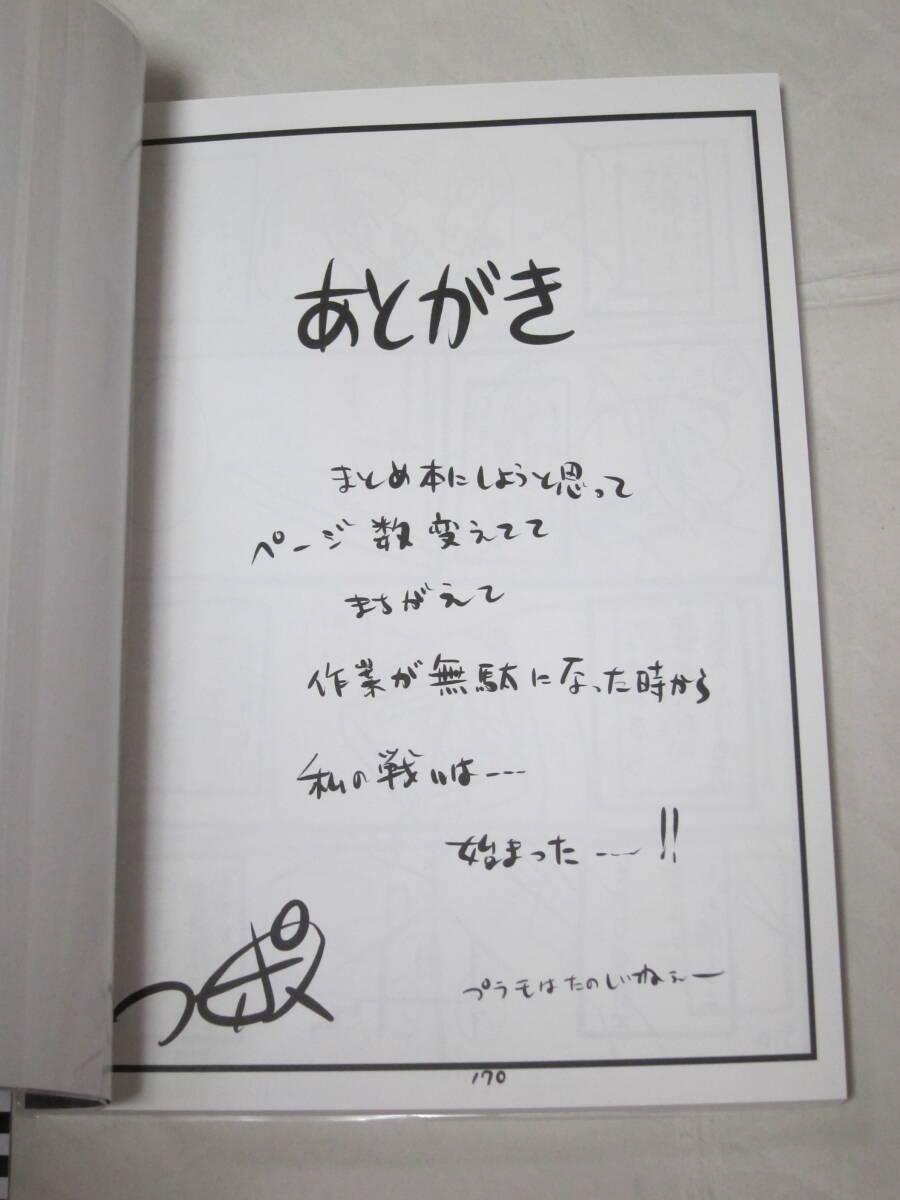 あとがき
まとめ本にしようと思って
ページ数変えてて
まちがえて
作業が無駄になった時から
私の戦いは---
始まった---!!
プラモはたのしいねぇー
170